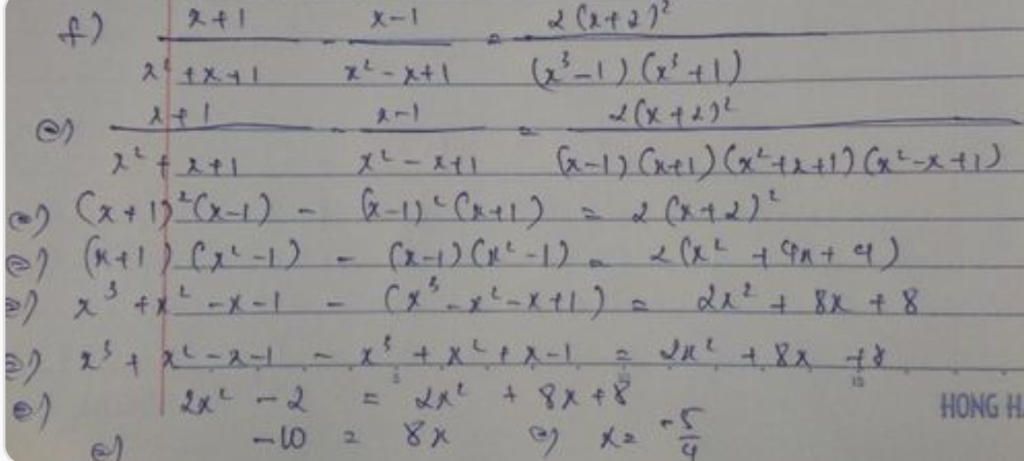 f) (x+1)/(x²+x+1) - (x-1)/(x²-x+1) = 2(x+2)²/((x³-1)(x³+1))
⇔) (x+1)/(x²+x+1) - (x-1)/(x²-x+1) = 2(x+2)²/((x-1)(x+1)(x²+x+1)(x²-x+1))
⇔) (x+1)²(x-1) - (x-1)²(x+1) = 2(x+2)²
⇔) (x+1)(x²-1) - (x-1)(x²-1) = 2(x²+4x+4)
⇔) x³+x²-x-1 - (x³-x²-x+1) = 2x²+8x+8
⇔) x³+x²-x-1-x³+x²+x-1 = 2x²+8x+8
5 10 15
⇔) 2x²-2 = 2x²+8x+8
HONG H
⇔) -10 = 8x ⇔) x = -5/4